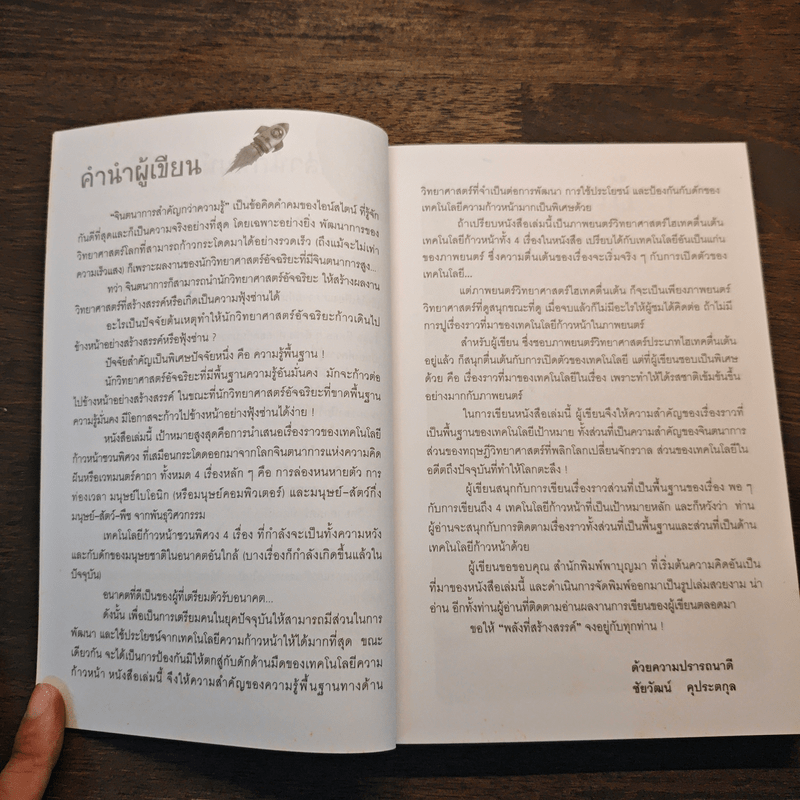 คำนำผู้เขียน
"จินตนาการสำคัญกว่าความรู้" เป็นข้อคิดคำคมของไอน์สไตน์ ที่รู้จัก
กันดีที่สุดและก็เป็นความจริงอย่างที่สุด โดยเฉพาะอย่างยิ่ง พัฒนาการของ
วิทยาศาสตร์โลกที่สามารถก้าวกระโดดมาได้อย่างรวดเร็ว (ถึงแม้จะไม่เท่า
ความเร็วแสง) ก็เพราะผลงานของนักวิทยาศาสตร์อัจฉริยะที่มีจินตนาการสูง...
ทว่า จินตนาการก็สามารถนำนักวิทยาศาสตร์อัจฉริยะ ให้สร้างผลงาน
วิทยาศาสตร์ที่สร้างสรรค์หรือเกิดเป็นความฟุ้งซ่านได้
อะไรเป็นปัจจัยต้นเหตุทำให้นักวิทยาศาสตร์อัจฉริยะก้าวเดินไป
ข้างหน้าอย่างสร้างสรรค์หรือฟุ้งซ่าน ?
ปัจจัยสำคัญเป็นพิเศษปัจจัยหนึ่ง คือ ความรู้พื้นฐาน !
นักวิทยาศาสตร์อัจฉริยะที่มีพื้นฐานความรู้อันมั่นคง มักจะก้าวต่อ
ไปข้างหน้าอย่างสร้างสรรค์ ในขณะที่นักวิทยาศาสตร์อัจฉริยะที่ขาดพื้นฐาน
ความรู้มั่นคง มีโอกาสจะก้าวไปข้างหน้าอย่างฟุ้งซ่านได้ง่าย !
หนังสือเล่มนี้ เป้าหมายสูงสุดคือการนำเสนอเรื่องราวของเทคโนโลยี
ก้าวหน้าชวนพิศวง ที่เสมือนกระโดดออกมาจากโลกจินตนาการแห่งความคิด
ฝันหรือเวทมนตร์คาถา ทั้งหมด 4 เรื่องหลัก ๆ คือ การล่องหนหายตัว การ
ท่องเวลา มนุษย์ไบโอนิก (หรือมนุษย์คอมพิวเตอร์) และมนุษย์-สัตว์กึ่ง
มนุษย์-สัตว์-พืช จากพันธุวิศวกรรม
เทคโนโลยีก้าวหน้าชวนพิศวง 4 เรื่อง ที่กำลังจะเป็นทั้งความหวัง
และกับดักของมนุษยชาติในอนาคตอันใกล้ (บางเรื่องก็กำลังเกิดขึ้นแล้วใน
ปัจจุบัน)
อนาคตที่ดีเป็นของผู้ที่เตรียมตัวรับอนาคต...
ดังนั้น เพื่อเป็นการเตรียมคนในยุคปัจจุบันให้สามารถมีส่วนในการ
พัฒนา และใช้ประโยชน์จากเทคโนโลยีความก้าวหน้าให้ได้มากที่สุด ขณะ
เดียวกัน จะได้เป็นการป้องกันมิให้ตกสู่กับดักด้านมืดของเทคโนโลยีความ
ก้าวหน้า หนังสือเล่มนี้ จึงให้ความสำคัญของความรู้พื้นฐานทางด้าน
วิทยาศาสตร์ที่จำเป็นต่อการพัฒนา การใช้ประโยชน์ และป้องกันกับดักของ
เทคโนโลยีความก้าวหน้ามากเป็นพิเศษด้วย
ถ้าเปรียบหนังสือเล่มนี้เป็นภาพยนตร์วิทยาศาสตร์ไฮเทคตื่นเต้น
เทคโนโลยีก้าวหน้าทั้ง 4 เรื่องในหนังสือ เปรียบได้กับเทคโนโลยีอันเป็นแก่น
ของภาพยนตร์ ซึ่งความตื่นเต้นของเรื่องจะเริ่มจริง ๆ กับการเปิดตัวของ
เทคโนโลยี...
แต่ภาพยนตร์วิทยาศาสตร์ไฮเทคตื่นเต้น ก็จะเป็นเพียงภาพยนตร์
วิทยาศาสตร์ที่ดูสนุกขณะที่ดู เมื่อจบแล้วก็ไม่มีอะไรให้ผู้ชมได้คิดต่อ ถ้าไม่มี
การปูเรื่องราวที่มาของเทคโนโลยีก้าวหน้าในภาพยนตร์
สำหรับผู้เขียน ซึ่งชอบภาพยนตร์วิทยาศาสตร์ประเภทไฮเทคตื่นเต้น
อยู่แล้ว ก็สนุกตื่นเต้นกับการเปิดตัวของเทคโนโลยี แต่ที่ผู้เขียนชอบเป็นพิเศษ
ด้วย คือ เรื่องราวที่มาของเทคโนโลยีในเรื่อง เพราะทำให้ได้รสชาติเข้มข้นขึ้น
อย่างมากกับภาพยนตร์
ในการเขียนหนังสือเล่มนี้ ผู้เขียนจึงให้ความสำคัญของเรื่องราวที่
เป็นพื้นฐานของเทคโนโลยีเป้าหมาย ทั้งส่วนที่เป็นความสำคัญของจินตนาการ
ส่วนของทฤษฎีวิทยาศาสตร์ที่พลิกโลกเปลี่ยนจักรวาล ส่วนของเทคโนโลยีใน
อดีตถึงปัจจุบันที่ทำให้โลกตะลึง !
ผู้เขียนสนุกกับการเขียนเรื่องราวส่วนที่เป็นพื้นฐานของเรื่อง พอ ๆ
กับการเขียนถึง 4 เทคโนโลยีก้าวหน้าที่เป็นเป้าหมายหลัก และก็หวังว่า ท่าน
ผู้อ่านจะสนุกกับการติดตามเรื่องราวทั้งส่วนที่เป็นพื้นฐานและส่วนที่เป็นด้าน
เทคโนโลยีก้าวหน้าด้วย
ผู้เขียนขอขอบคุณ สำนักพิมพ์พาบุญมา ที่เริ่มต้นความคิดอันเป็น
ที่มาของหนังสือเล่มนี้ และดำเนินการจัดพิมพ์ออกมาเป็นรูปเล่มสวยงาม น่า
อ่าน อีกทั้งท่านผู้อ่านที่ติดตามอ่านผลงานการเขียนของผู้เขียนตลอดมา
ขอให้ "พลังที่สร้างสรรค์" จงอยู่กับทุกท่าน !
ด้วยความปรารถนาดี
ชัยวัฒน์ คุประตกุล